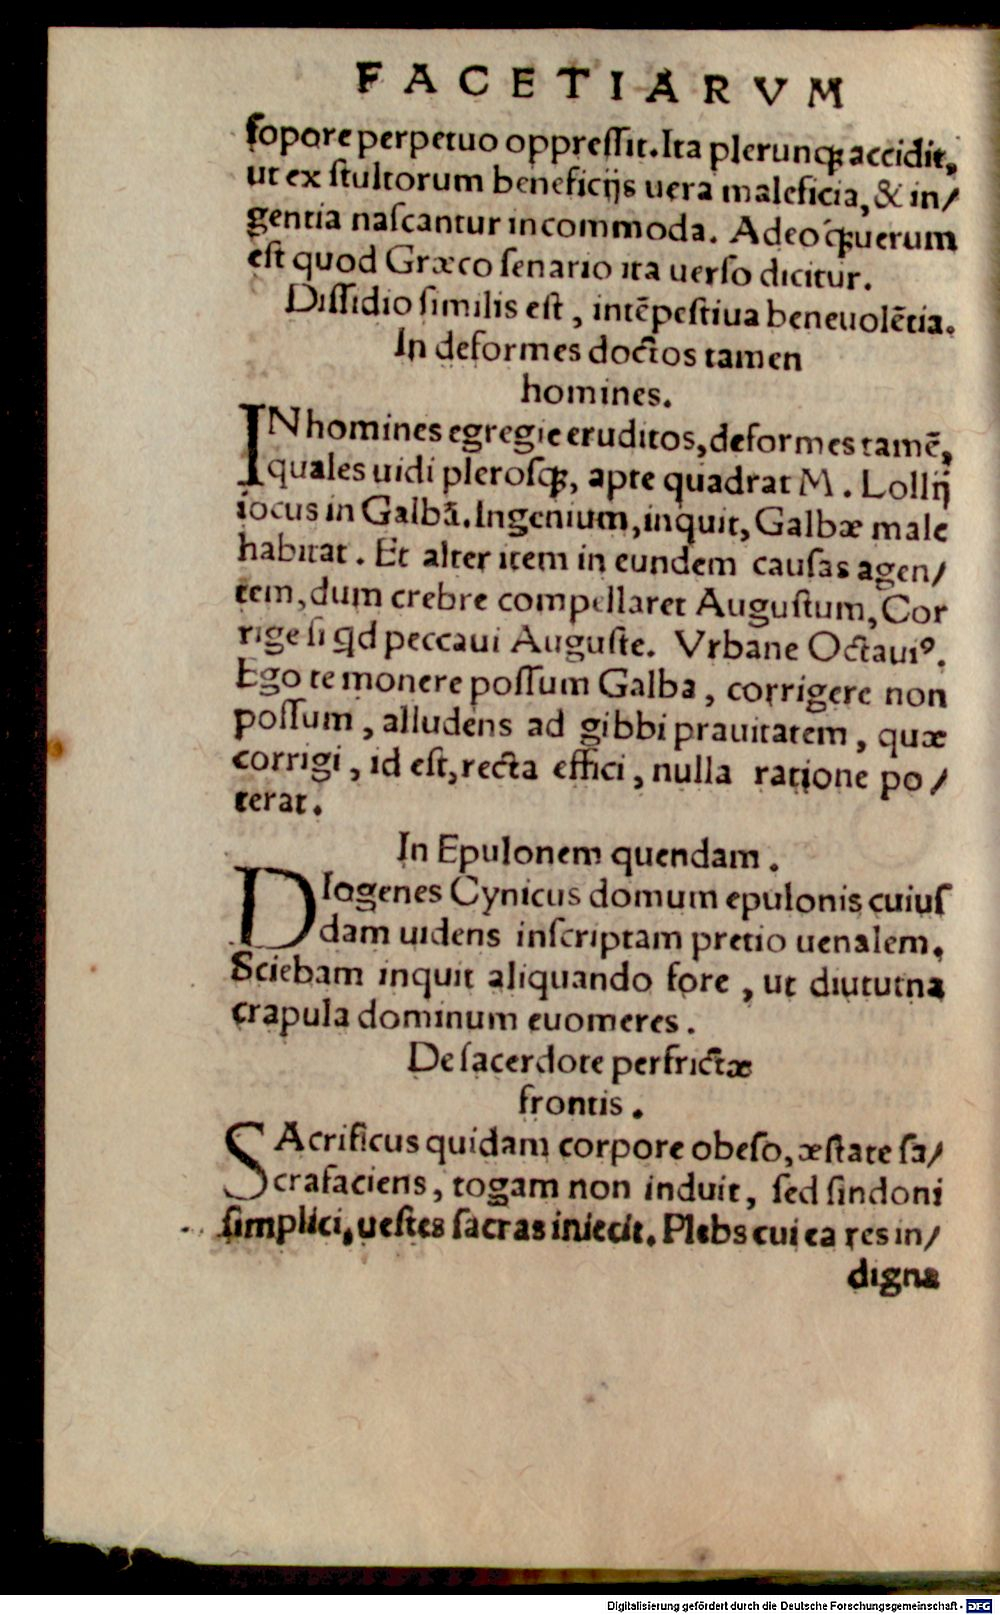 FACETIARVM
ſopore perpetuo oppreſſit. Ita plerunqꝫ accidit,
ut ex ſtultorum beneficijs uera maleficia, & in/
gentia naſcantur incommoda. Adeoq́ꝫ uerum
eſt quod Græco ſenario ita uerſo dicitur.
Diſſidio ſimilis eſt, intẽpeſtiua beneuolẽtia.
In deformes doctos tamen
homines.
IN homines egregie eruditos, deformes tamẽ,
quales uidi pleroſqꝫ, apte quadrat M. Lollij
iocus in Galbã. Ingenium, inquit, Galbæ male
habitat. Et alter item in eundem cauſas agen/
tem, dum crebre compellaret Auguſtum, Cor
rige ſi qd peccaui Auguſte. Vrbane Octauiꝰ.
Ego te monere poſſum Galba, corrigere non
poſſum, alludens ad gibbi prauitatem, quæ
corrigi, id eſt, recta effici, nulla ratione po/
terat.
In Epulonem quendam.
DIogenes Cynicus domum epulonis cuiuſ
dam uidens inſcriptam pretio uenalem.
Sciebam inquit aliquando fore, ut diututna
crapula dominum euomeres.
De ſacerdote perfrictæ
frontis.
SAcrificus quidam corpore obeſo, æſtate ſa/
cra faciens, togam non induit, ſed ſindoni
ſimplici, ueſtes ſacras iniecit. Plebs cui ea res in/
digna
Digitalisierung gefördert durch die Deutsche Forschungsgemeinschaft - DFG